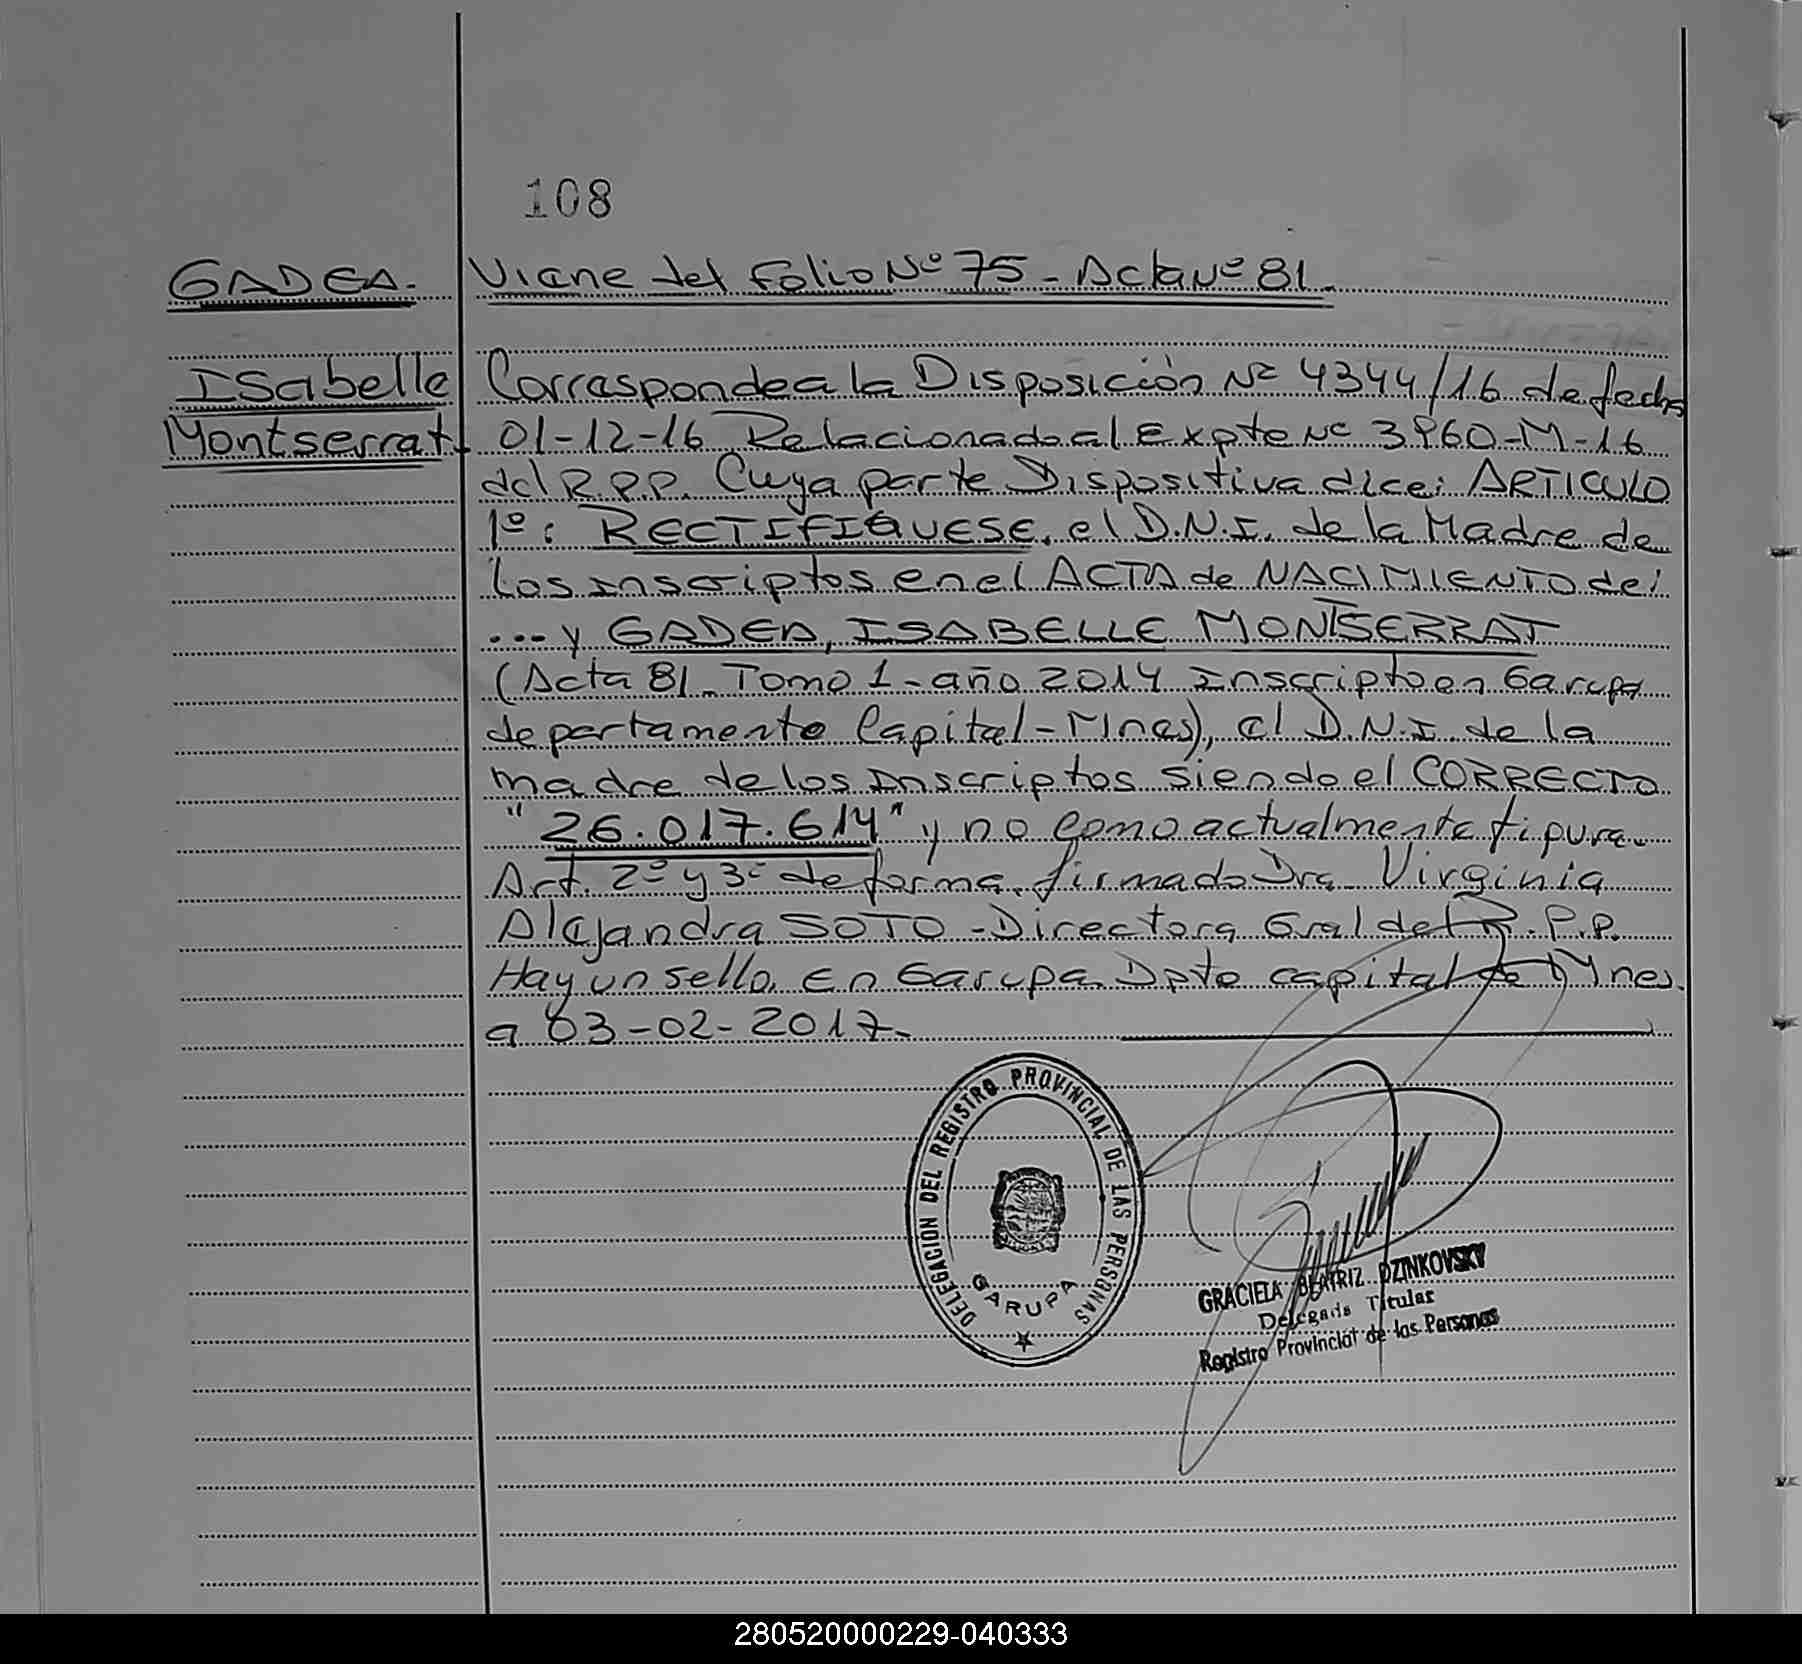 108
GADEA. Viene del Folio Nº 75 - Acta Nº 81.
Isabelle Corresponde a la Disposición Nº 4344/16 de fecha
Montserrat. 01-12-16 Relacionado al Expte Nº 3960-M-16
del R.P.P. Cuya parte Dispositiva dice: ARTICULO
1º: RECTIFIQUESE, el D.N.I. de la Madre de
los inscriptos en el ACTA de NACIMIENTO de:
... y GADEA, ISABELLE MONTSERRAT
(Acta 81 - Tomo 1 - año 2014 Inscripto en Garupa
departamento Capital - Mnes), el D.N.I. de la
madre de los Inscriptos siendo el CORRECTO
"26.017.614" y no como actualmente figura.
Art. 2º y 3º de forma, firmado Dra. Virginia
Alejandra SOTO - Directora Gral del R.P.P.
Hay un sello. En Garupa Dpto capital de Mnes.
a 03-02-2017.
DELEGACION DEL REGISTRO PROVINCIAL DE LAS PERSONAS
GARUPA
GRACIELA BEATRIZ DZINKOVSKY
Delegada Titular
Registro Provincial de las Personas
280520000229-040333